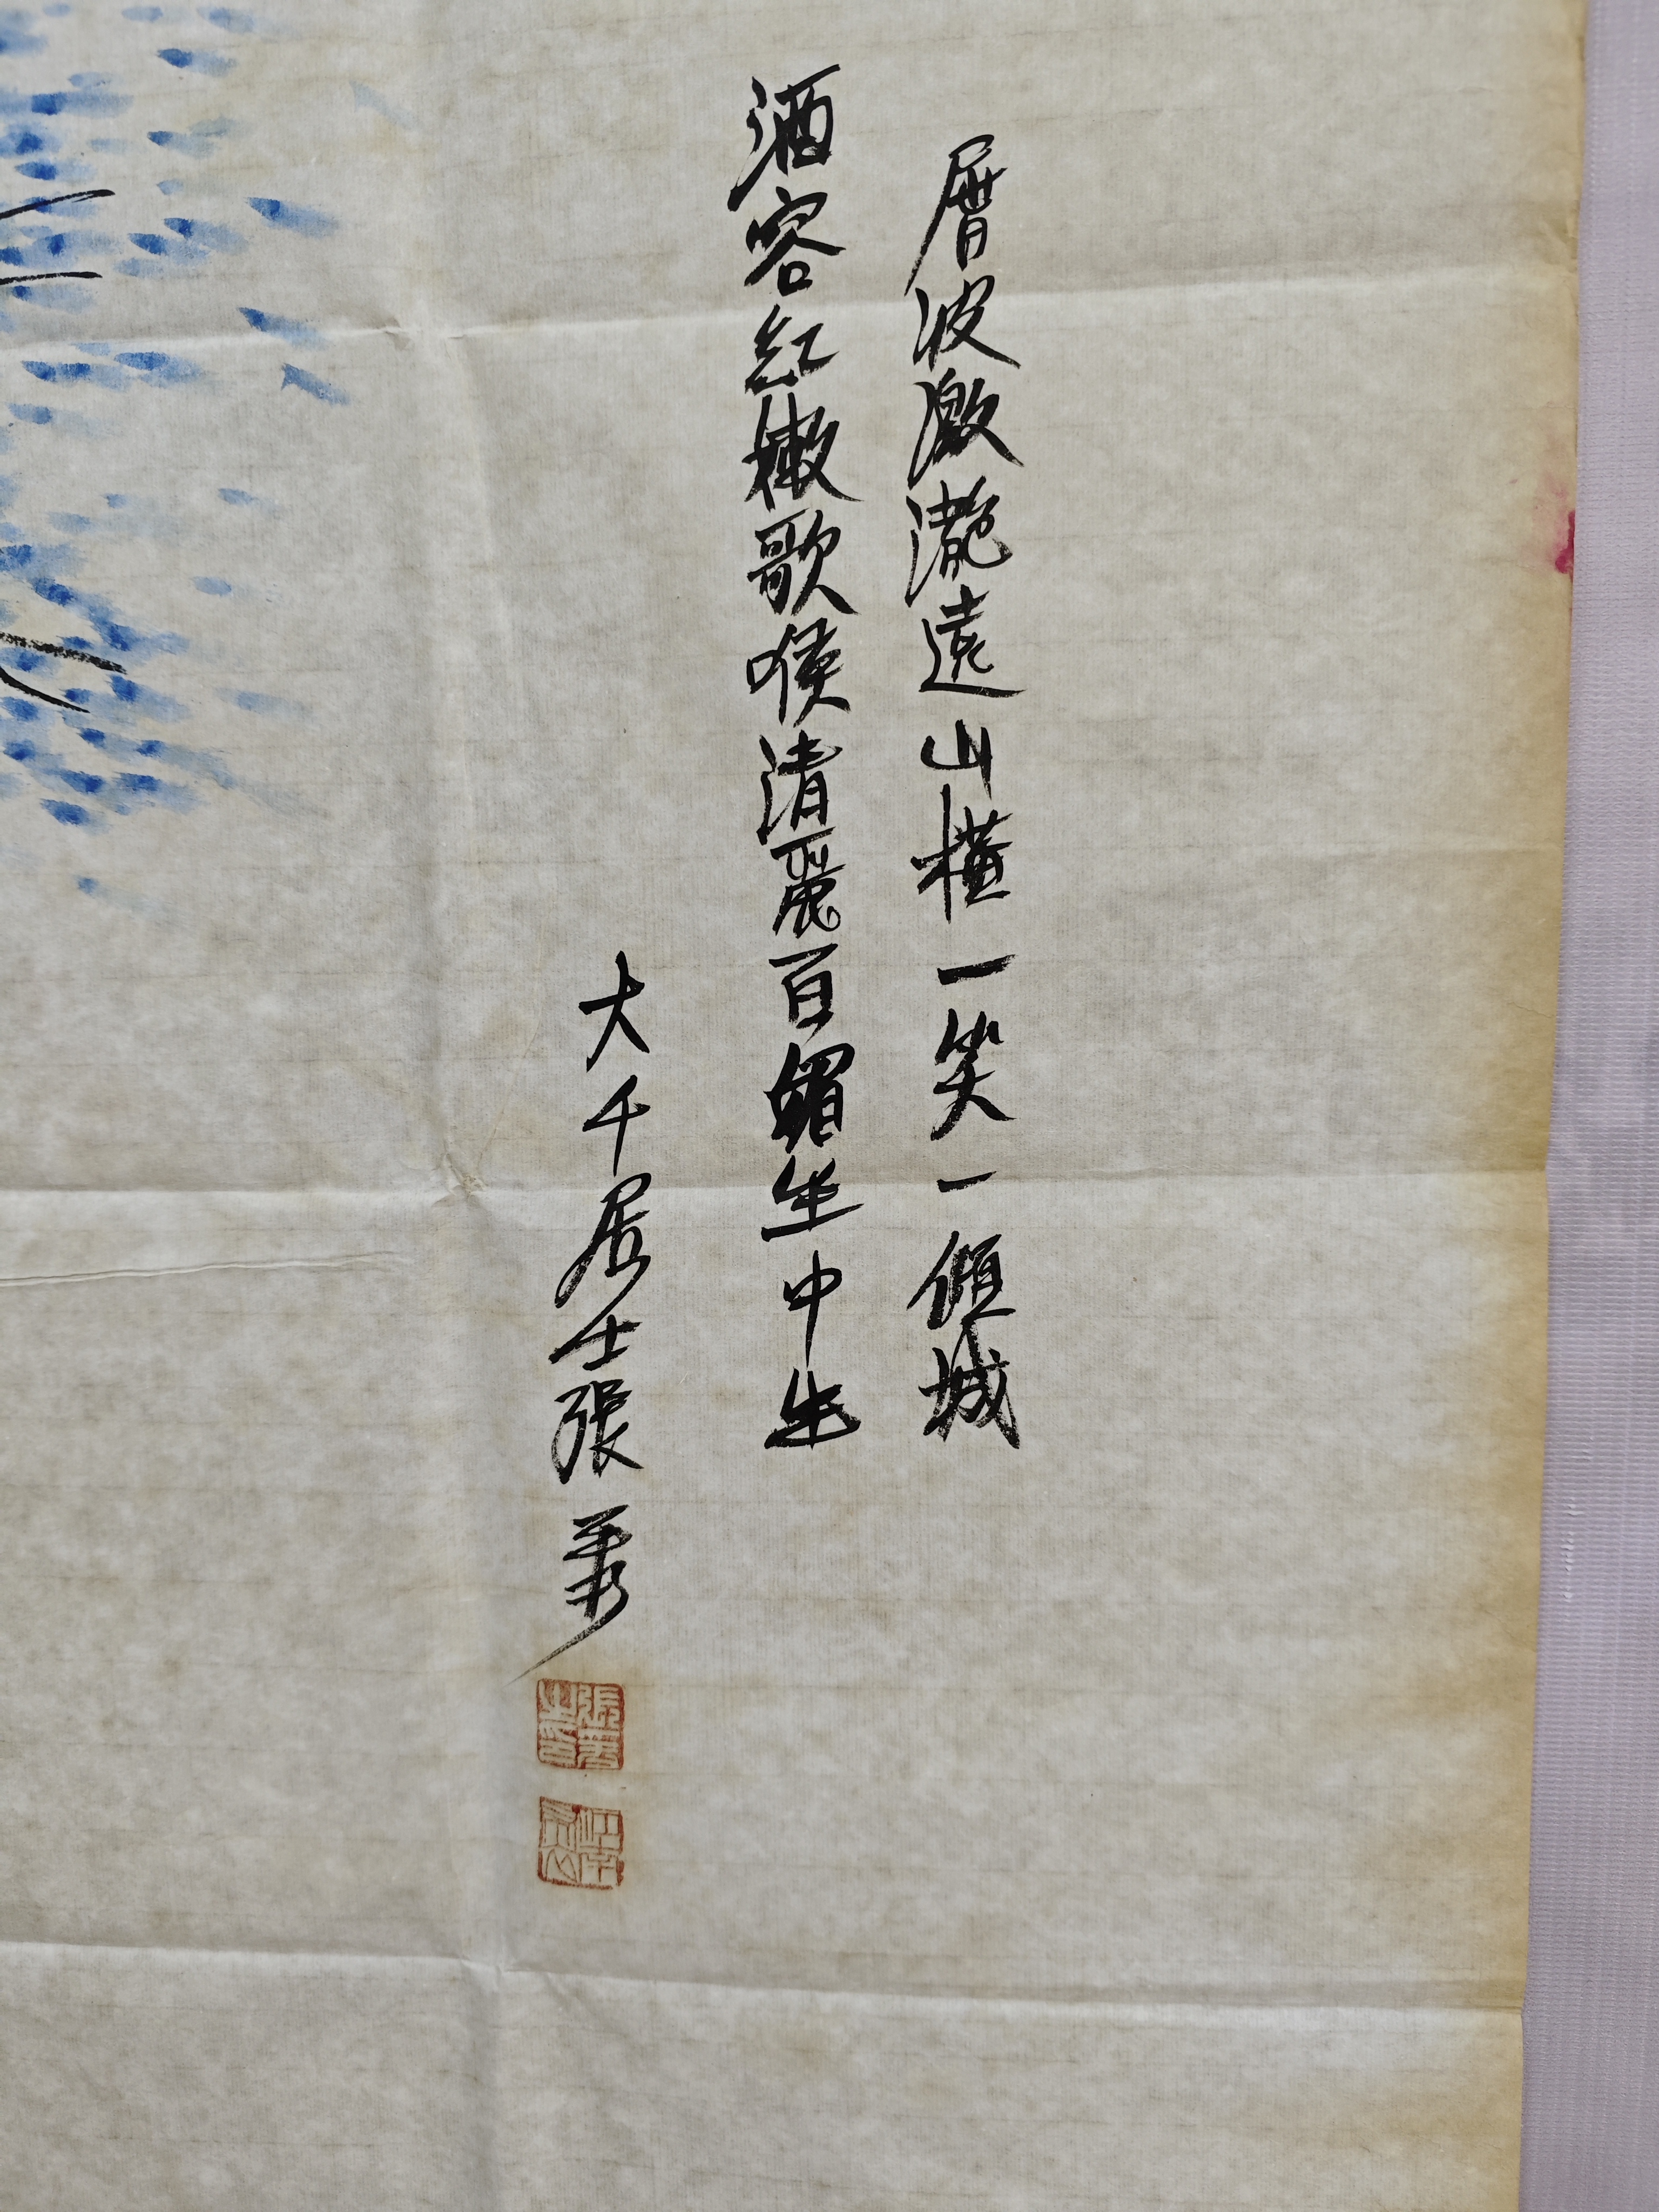 層波瀲灧遠山橫一笑一傾城
酒容紅嫩歌喉清麗百媚坐中生
大千居士張爰
張爰之印